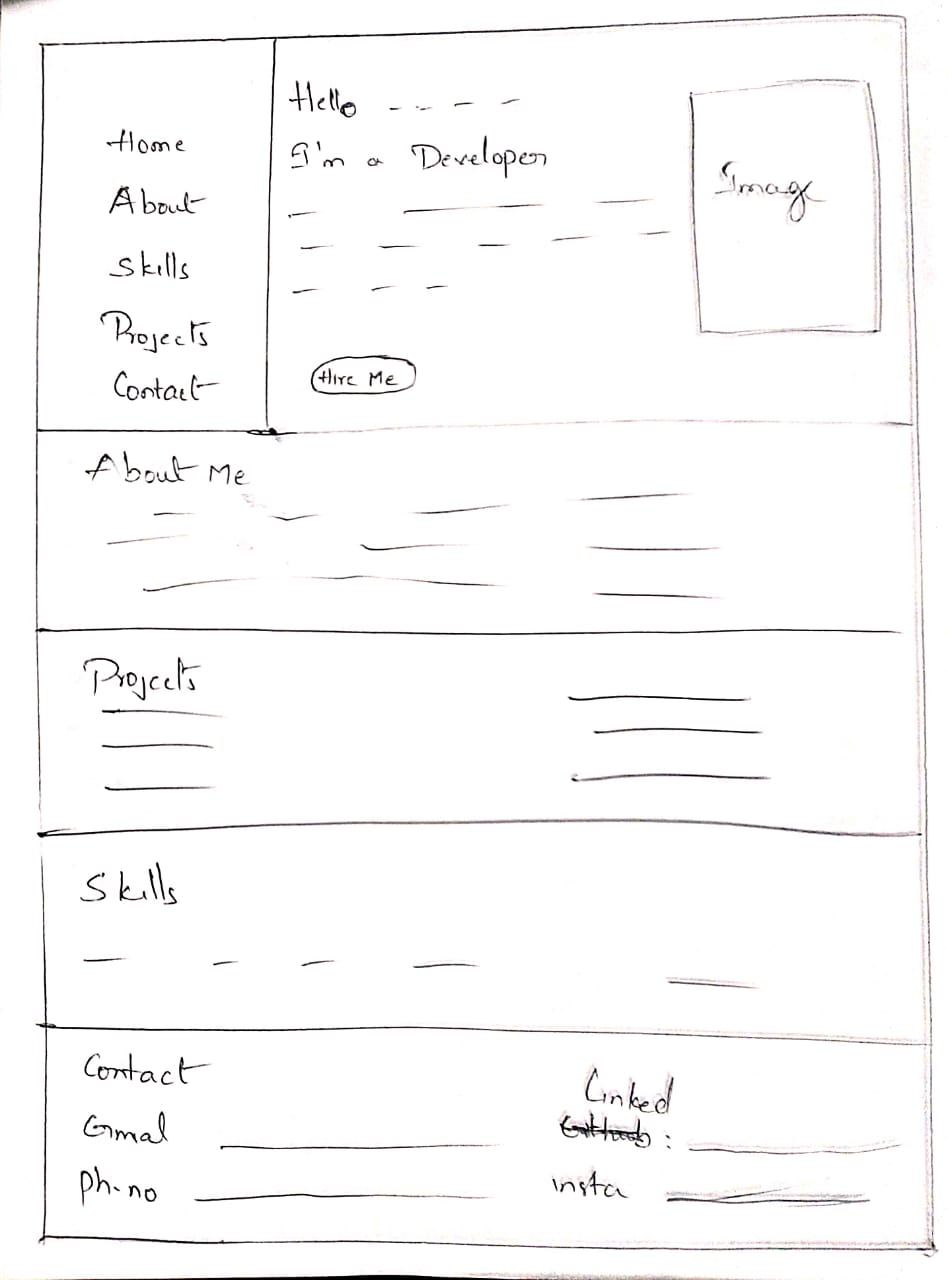 Home
About
Skills
Projects
Contact
Hello
I'm a Developer
Image
Hire Me
About Me
Projects
Skills
Contact
Gmal
Ph-no
Linked
:
insta